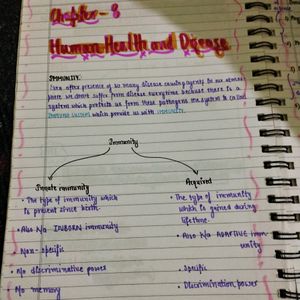 Chapter - 8
Human Health and Disease
IMMUNITY:
Even after presence of so many disease causing agents in our
where we don't suffer from disease everytime because there is a
system which protects us from these pathogens the system is called
immune system which provide us with immunity.
Immunity
Innate immunity
Acquired
• The type of immunity which
is present since birth.
• The type of immunity
which is gained during
lifetime.
• Also K/a INBORN immunity
• Also K/a ADAPTIVE imm-
unity
• Non-Specific
• Specific
• No discriminative power
• Discrimination power
• No memory